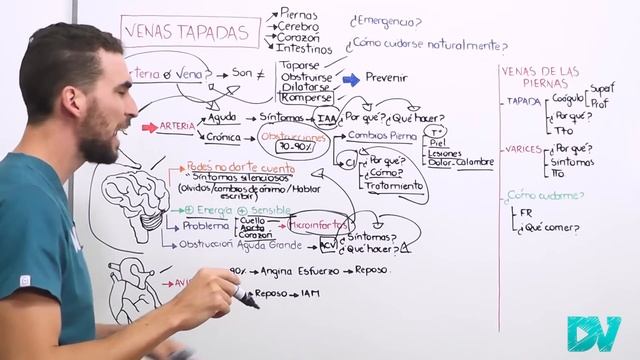 VENAS TAPADAS
Piernas
Cerebro
Corazón
Intestinos
¿Emergencia?
¿Cómo cuidarse naturalmente?
Arteria o Vena? → Son ≠
Taparse
Obstruirse
Dilatarse
Romperse
Prevenir
ARTERIA
Aguda → Síntomas → IAA → ¿Por qué? ¿Qué hacer?
Crónica → Obstrucciones
70-90%
Cambios Pierna
T°
Piel
Lesiones
Dolor-Calambre
CI
¿Por qué?
¿Cómo?
Tratamiento
Podés no darte cuenta
"Síntomas silenciosos"
(olvidos/cambios de ánimo/Hablar
escribir)
⊕ Energía ⊕ Sensible
Problema
Cuello
Aorta
Corazón
→ Microinfartos
Obstrucción Aguda Grande → ACV
¿Síntomas?
¿Qué hacer?
90% → Angina Esfuerzo → Reposo.
Reposo → IAM
VENAS DE LAS
PIERNAS
- TAPADA
Coágulo
Superf
Prof
¿Por qué?
Tto
- VARICES
¿Por qué?
Síntomas
Tto
¿Cómo cuidarme?
FR
¿Qué comer?
DV